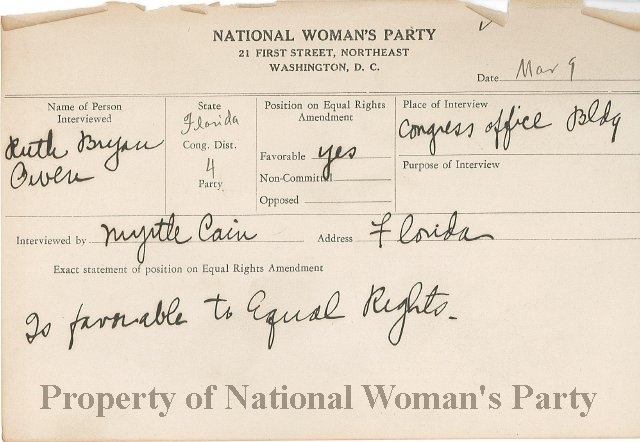 NATIONAL WOMAN'S PARTY
21 FIRST STREET, NORTHEAST
WASHINGTON, D. C.
Date Mar 9
Name of Person
Interviewed
Ruth Bryan
Owen
State
Florida
Cong. Dist.
4
Party
Position on Equal Rights
Amendment
Favorable yes
Non-Committal
Opposed
Place of Interview
Congress office Bldg
Purpose of Interview
Interviewed by Myrtle Cain Address Florida
Exact statement of position on Equal Rights Amendment
Is favorable to Equal Rights.
Property of National Woman's Party